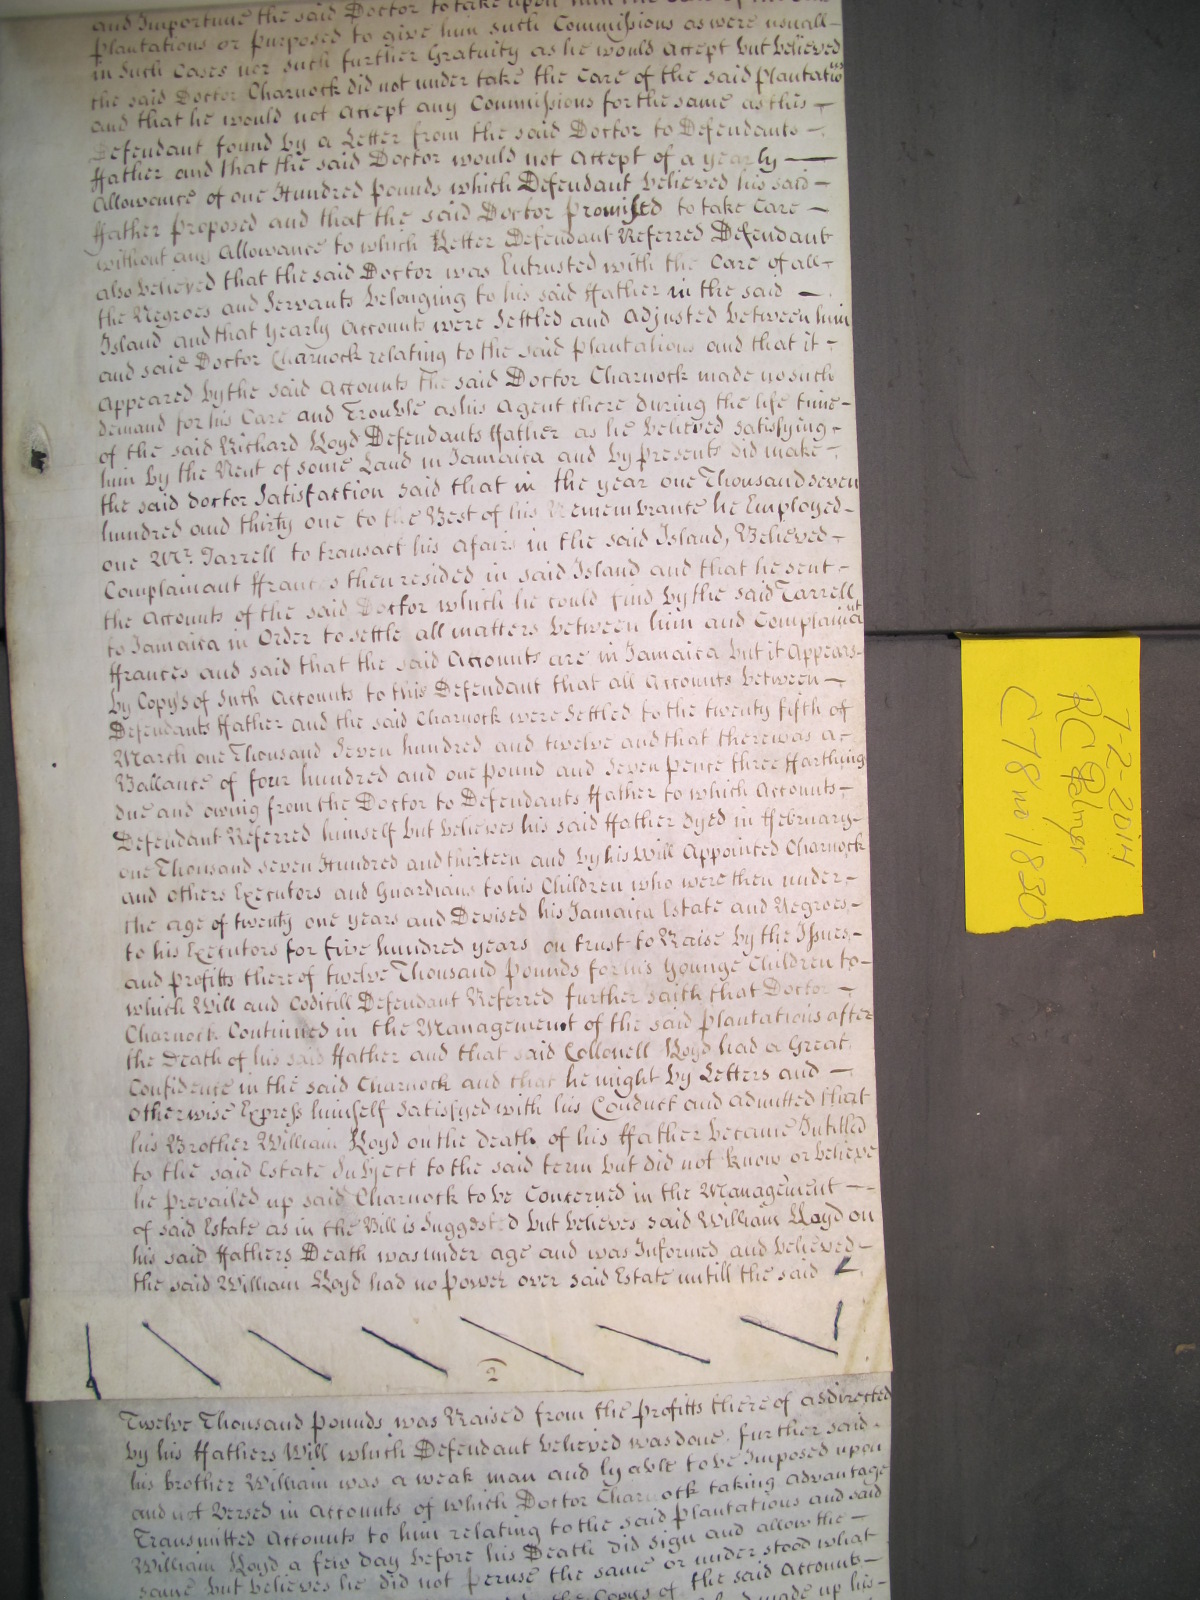 and Importune the said Doctor to take upon him the Care of the said
plantations or purposed to give him such Commissions as were usuall
in Such Cases nor such further Gratuity as he would Accept but believed
the said Doctor Charnock did not under take the Care of the said plantatio.ns
and that he would not Accept any Commissions for the same as this
Defendant found by a Letter from the said Doctor to Defendants
ffather and that the said Doctor would not Accept of a yearly
Allowance of one Hundred pounds which Defendant believed his said
ffather proposed and that the said Doctor promised to take Care
without any Allowance to which Letter Defendant Referred Defendant
also believed that the said Doctor was Entrusted with the Care of all
the Negroes and Servants belonging to his said ffather in the said
Island and that yearly Accounts were Settled and adjusted between him
and said Doctor Charnock relating to the said plantations and that it
Appeared by the said Accounts the said Doctor Charnock made no such
demand for his Care and Trouble as his Agent there during the life time
of the said Richard Lloyd Defendants ffather as he believed satisfying
him by the Rent of some Land in Jamaica and by presents did make
the said doctor Satisfaction said that in the year one Thousand seven
hundred and thirty one to the Best of his Remembrance he Employed
one Mr. Tarrell to transact his afairs in the said Island, Believed
Complainant ffrances then resided in said Island and that he sent
the Accounts of the said Doctor which he could find by the said Tarrell
to Jamaica in Order to settle all matters between him and Complainant
ffrances and said that the said Accounts are in Jamaica but it Appears
by Copys of Such Accounts to this Defendant that all Accounts between
Defendants ffather and the said Charnock were Settled to the twenty fifth of
March one Thousand Seven hundred and twelve and that there was a
Ballance of four hundred and one pound and Seven pence three ffarthings
due and owing from the Doctor to Defendants ffather to which Accounts
Defendant Referred himself but believes his said ffather dyed in ffebruary
one Thousand seven Hundred and thirteen and by his Will Appointed Charnock
and others Executors and Guardians to his Children who were then under
the age of twenty one years and Devised his Jamaica Estate and Negroes
to his Executors for five hundred years on trust to Raise by the Issues
and profitts thereof twelve Thousand pounds for his younge Children to
which Will and Codicill Defendant Referred further saith that Doctor
Charnock Continued in the Management of the said plantations after
the Death of his said ffather and that said Collonell Lloyd had a Great
Confidence in the said Charnock and that he might by Letters and
otherwise Express himself Satisfyed with his Conduct and admitted that
his Brother William Lloyd on the death of his ffather became Intitled
to the said Estate Subject to the said term but did not know or believe
he prevailed up said Charnock to be Concerned in the Management
of said Estate as in the Bill is Suggested but believes said William Lloyd on
his said ffathers Death was under age and was Informed and believed
the said William Lloyd had no power over said Estate untill the said
2
Twelve Thousand pounds was Raised from the profitts there of as directed
by his ffathers Will which Defendant believed was done further said
his brother William was a weak man and lyable to be Imposed upon
and not Versed in Accounts of which Doctor Charnock taking advantage
Transmitted Accounts to him relating to the said plantations and said
William Lloyd a few day before his Death did sign and allow the
same but believes he did not peruse the same or understood what
the Copys of the said Accounts
made up his
7-2-2014
RC Palmer
C78 no 1830